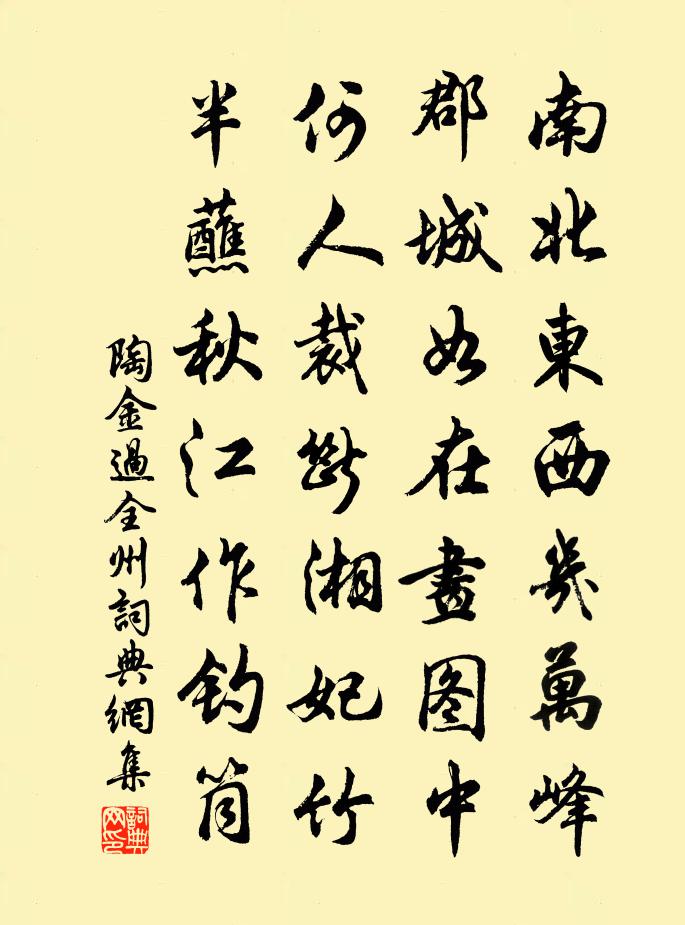 南北東西幾萬峰
郡城如在畫图中
何人裁斷湘妃竹
半蘸秋江作釣筒
陶金過全州詞典網集
詞典网印